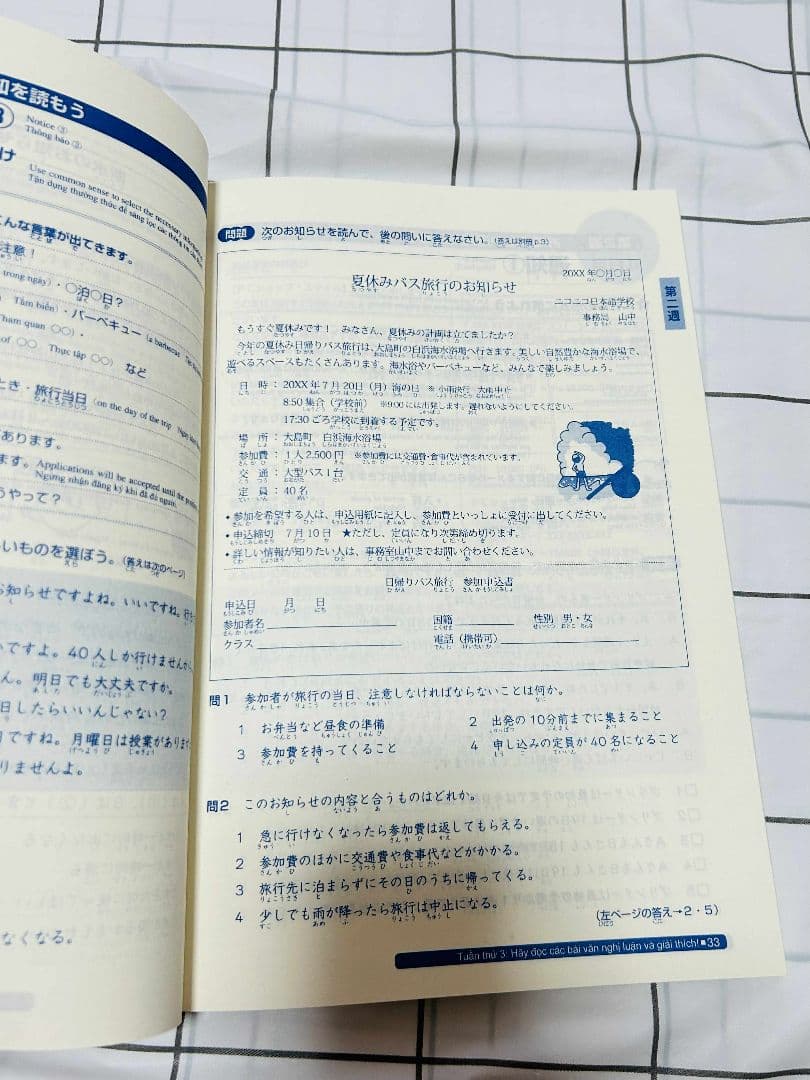 知を読もう
Notice ③
Thông báo ③
Use common sense to select the necessary
Tận dụng thường thức để sàng lọc các
こんな言葉が出てきます。
注意！
trong ngày)・○泊○日？
Tắm biển)・バーベキュー (a barbecue
Tham quan ○○)・
of ○○ Thực tập ○○) など
とき・旅行当日 (on the day of the trip Ngày
があります。
ます。Applications will be accepted until the
Ngưng nhận đăng ký khi đã đủ người.
うやって？
いいものを選ぼう。(答えは次のページ)
お知らせですよね。いいですね。行
いですよ。40人しか行けませんから
ん。明日でも大丈夫ですか。
日したらいいんじゃない？
ですね。月曜日は授業がありま
りませんよ。
なくなる。
問題 次のお知らせを読んで、後の問いに答えなさい。(答えは別冊p.3)
20XX年○月○日
夏休みバス旅行のお知らせ
ニコニコ日本語学校
事務局 山中
もうすぐ夏休みです！ みなさん、夏休みの計画は立てましたか？
今年の夏休み日帰りバス旅行は、大島町の白浜海水浴場へ行きます。美しい自然豊かな海水浴場で、
遊べるスペースもたくさんあります。海水浴やバーベキューなど、みんなで楽しみましょう。
日 時：20XX年7月20日（月）海の日 ※小雨決行 大雨中止
8:50集合（学校前） ※9:00には出発します。遅れないようにしてください。
17:30ごろ学校に到着する予定です。
場 所：大島町 白浜海水浴場
参加費：1人2,500円 ※参加費には交通費・食事代が含まれています。
交 通：大型バス1台
定 員：40名
・参加を希望する人は、申込用紙に記入し、参加費といっしょに受付に出してください。
・申込締切 7月10日 ★ただし、定員になり次第締め切ります。
・詳しい情報が知りたい人は、事務室山中までお問い合わせください。
日帰りバス旅行 参加申込書
申込日 月 日
参加者名 国籍 性別 男・女
クラス 電話（携帯可）
第二週
問1 参加者が旅行の当日、注意しなければならないことは何か。
1 お弁当など昼食の準備 2 出発の10分前までに集まること
3 参加費を持ってくること 4 申し込みの定員が40名になること
問2 このお知らせの内容と合うものはどれか。
1 急に行けなくなったら参加費は返してもらえる。
2 参加費のほかに交通費や食事代などがかかる。
3 旅行先に泊まらずにその日のうちに帰ってくる。
4 少しでも雨が降ったら旅行は中止になる。
(左ページの答え→2・5)
Tuần thứ 3: Hãy đọc các bài văn nghị luận và giải thích! ■33